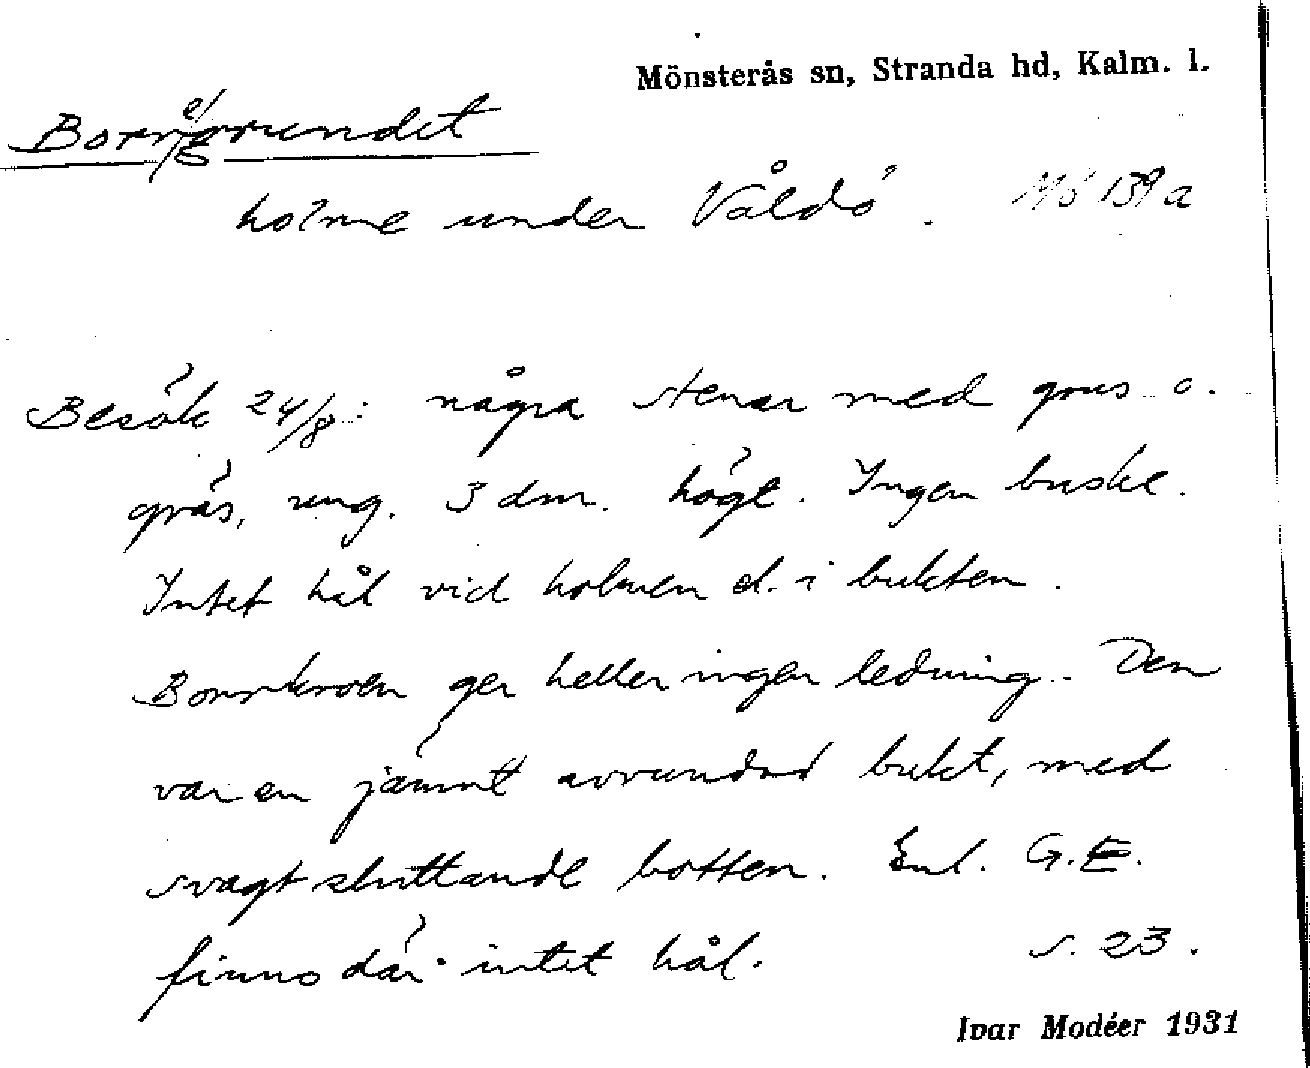 Mönsterås sn, Stranda hd, Kalm. l.
Borregrundet
holme under Våldö. Mö 139a
Besök 24/8: några stenar med grus o.
gräs, ung. 3 dm. högt. Ingen buske.
Intet hål vid holmen el. i bukten.
Borrkroen ger heller ingen ledning. Den
var en jämnt avrundad bukt, med
svagt sluttande botten. Enl. G.E.
finns där intet hål. s. 23.
Ivar Modéer 1931